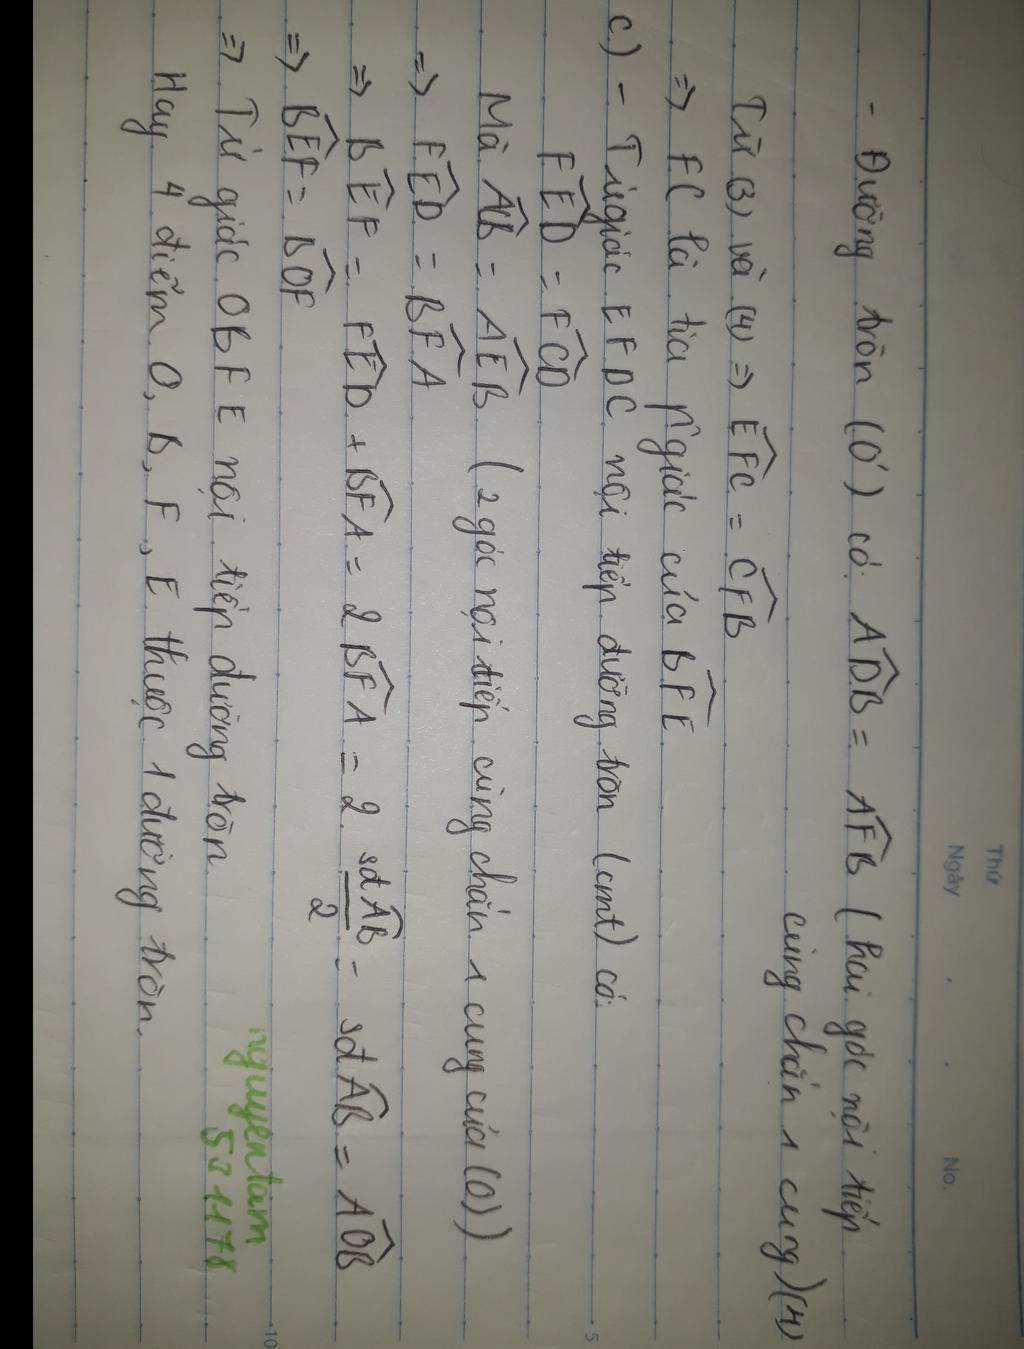 Thứ
Ngày . . No.
- Đường tròn (O') có: ADB = AFB (hai góc nội tiếp
cùng chắn 1 cung)(4)
Từ (3) và (4) => EFC = CFB
=> FC là tia pgiác của BFE
c) - Tứ giác EFDC nội tiếp đường tròn (cmt) có:
FED = FCD
Mà AB = AEB (2 góc nội tiếp cùng chắn 1 cung của (O))
=> FED = BFA
=> BEF = FED + BFA = 2 BFA = 2. sđ AB / 2 = sđ AB = AOB
=> BEF = BOF
=> Tứ giác OBFE nội tiếp đường tròn
Hay 4 điểm O, B, F, E thuộc 1 đường tròn.
nguyentam
531178
5
10